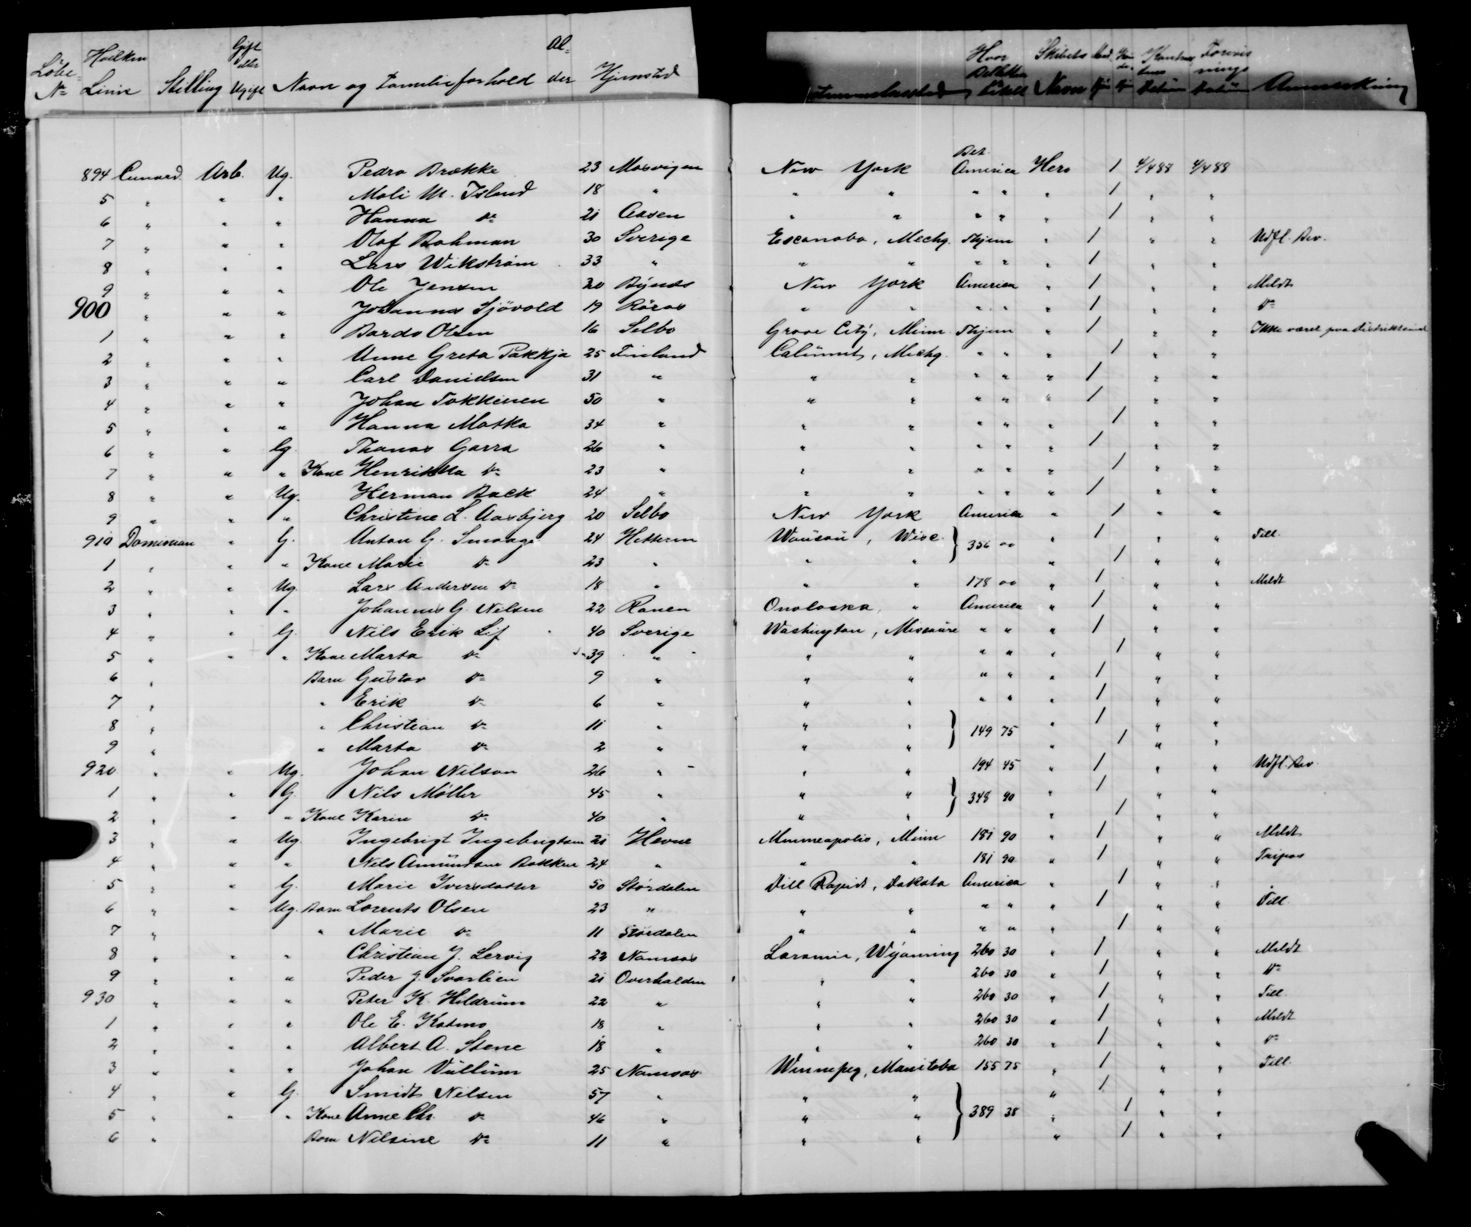 Løbe No Hvilken Linie Stilling Gift eller Ugift Navn og Familieforhold Alder Hjemsted Hvor Billetten betalt Skibets Navn Anmerkning
894 Cunard Arb. Ug. Pedro Brække 23 Mosvigen New York Bet. America Hero 1 4/4 88 4/4 88
5 " " " Moli M. Island 18 " " " " " " 1 " "
6 " " " Hanna Do 21 Aasen " " " " " 1 " "
7 " " " Olof Bohman 30 Sverige Escanaba, Mechg. Thjem " 1 " " Udfl. Bev.
8 " " " Lars Wikström 33 " " " " " " 1 " "
9 " " " Ole Jensen 20 Bynæs New York America " 1 " " Meldt
900 " " " Johannes Sjövold 19 Röros " " " " " 1 " " Do
1 " " " Bardo Olsen 16 Selbo Grove City, Minn Thjem " 1 " " Ikke været paa
2 " " " Anne Greta Pakkja 25 Finland Calumet, Mechg. " " " 1 " "
3 " " " Carl Danielsen 31 " " " " " " 1 " "
4 " " " Johan Tokkinen 50 " " " " " " 1 " "
5 " " " Hanna Matka 34 " " " " " " 1 " "
6 " " G. Thomas Garra 26 " " " " " " 1 " "
7 " " " Kone Henrikka Do 23 " " " " " " 1 " "
8 " " Ug. Herman Back 24 " " " " " " 1 " "
9 " " " Christine L. Aasbjerg 20 Selbo New York America " 1 " "
910 Dominion " G. Anton G. Smaage 24 Hitteren Wausau, Wisc. } 356 00 " 1 " " Till.
1 " " " Kone Marie Do 23 " " " " 1 " "
2 " " Ug. Lars Andersen Do 18 " " " 178 00 " 1 " " Meldt
3 " " " Johannes G. Nilsen 22 Ranen Onolaska, " America " 1 " "
4 " " G. Nils Erik Lif 40 Sverige Washington, Missoure " " " 1 " "
5 " " " Kone Marta Do 39 " " " " " " 1 " "
6 " Barn Gustav Do 9 " " " " " " 1 " "
7 " " Erik Do 6 " " " " " " 1 " "
8 " " Christian Do 11 " " " } 149 75 " 1 " "
9 " " Marta Do 2 " " " " 1 " "
920 " " Ug. Johan Nilson 26 " " " 194 45 " 1 " " Udfl. Bev
1 " " G. Nils Møller 45 " " " } 348 90 " 1 " "
2 " " " Kone Karin Do 40 " " " " 1 " "
3 " " Ug. Ingebrigt Ingebrigtsen 21 Hevne Minneapolis, Minn 181 90 " 1 " " Meldt
4 " " " Nils Amundsen Bakken 24 " " " 181 90 " 1 " " Tripos
5 " " G. Marie Iversdatter 50 Størdalen Dell Rapids, Dakota America " 1 " "
6 " " Ug. Barn Lorents Olsen 23 " " " " " " 1 " " Till.
7 " " Marie Do 11 Størdalen " " " " " 1 " "
8 " " " Christian J. Lervig 22 Namsos Laramie, Wyoming 260 30 " 1 " " Meldt
9 " " " Peder J. Svarlien 21 Overhalden " " 260 30 " 1 " " Do
930 " " " Peter K. Hildrum 22 " " " 260 30 " 1 " " Till
1 " " " Ole E. Katmo 18 " " " 260 30 " 1 " " Meldt
2 " " " Albert A. Stene 18 " " " 260 30 " 1 " " Do
3 " " " Johan Vullum 25 Namsos Winnepeg, Manitoba 155 75 " 1 " " Till
4 " " G. Smidt Nilsen 57 " " " } 389 38 " 1 " "
5 " " " Kone Anne Chr. Do 46 " " " " 1 " "
6 " Barn Nilsine Do 11 " " " " 1 " "